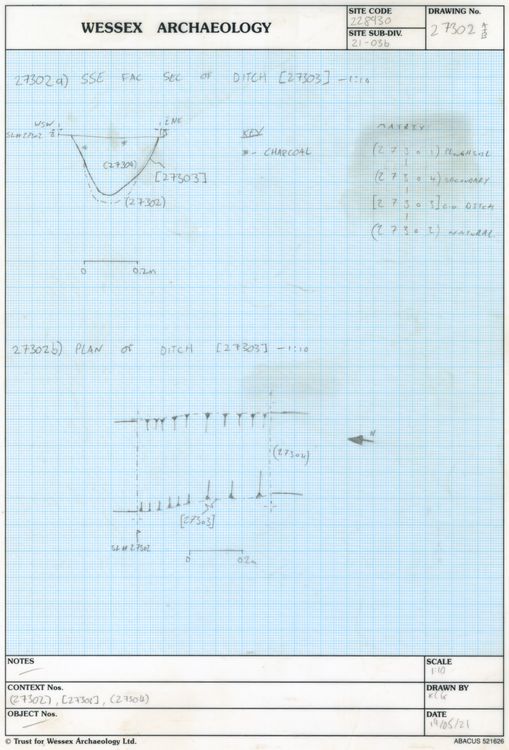 WESSEX ARCHAEOLOGY
SITE CODE
228930
SITE SUB-DIV.
21-03b
DRAWING No.
27302 A/B
27302a) SSE FAC SEC OF DITCH [27303] - 1:10
WSW
ENE
SL# 27302
(27304)
[27303]
(27302)
KEY
* - CHARCOAL
MATRIX
(27301) PLOUGHSOIL
(27304) SECONDARY
[27303] CUT DITCH
(27302) NATURAL
0 0.2m
27302b) PLAN OF DITCH [27303] - 1:10
N
(27304)
[27303]
SL# 27302
0 0.2m
NOTES
SCALE
1:10
CONTEXT Nos.
(27302), [27303], (27304)
DRAWN BY
OBJECT Nos.
DATE
19/05/21
© Trust for Wessex Archaeology Ltd.
ABACUS 521626